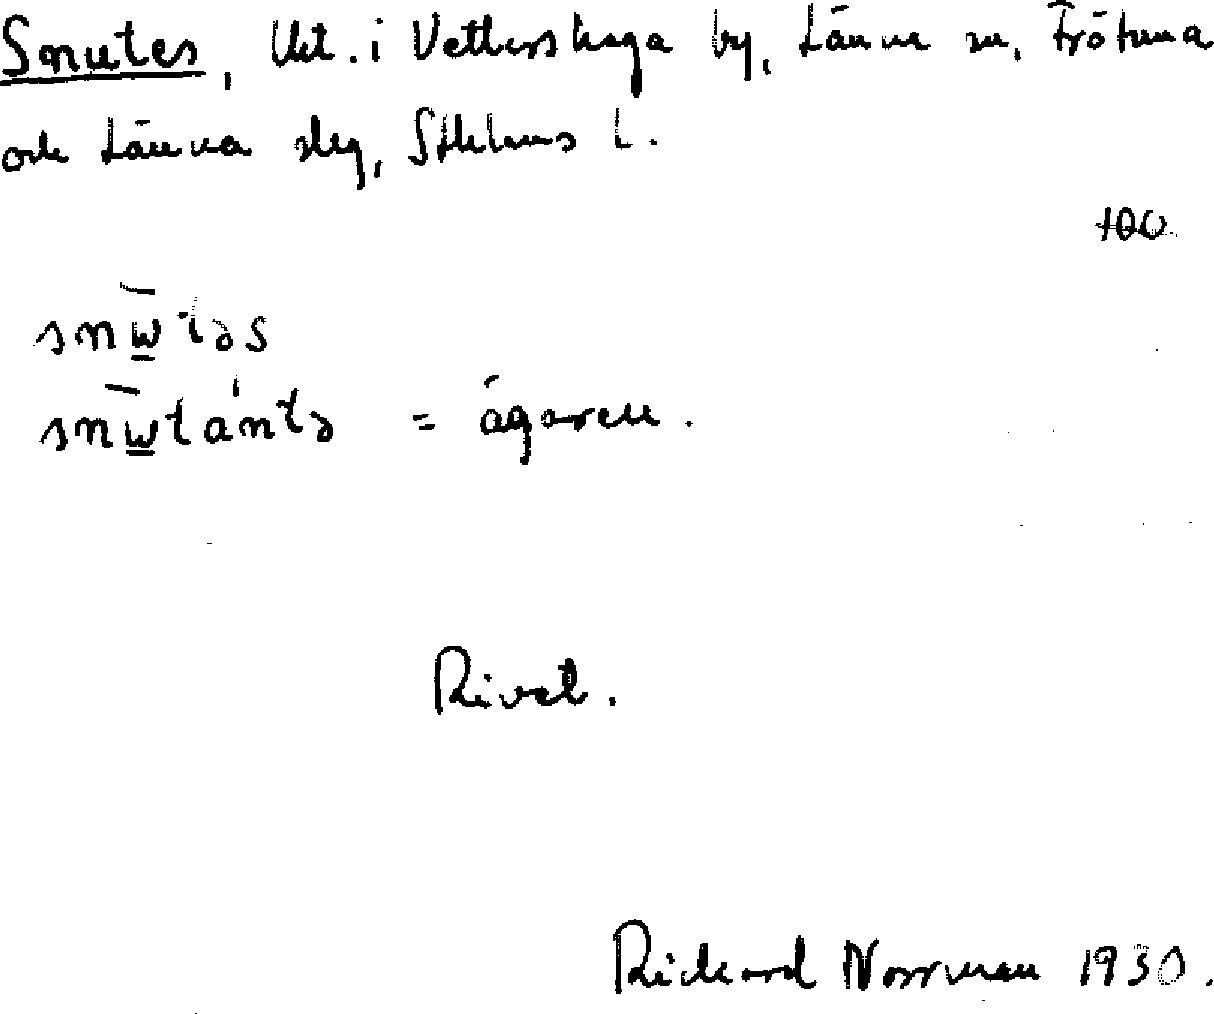 Snutes, Lht. i Vettershaga by, Länna sn, Frötuna
och Länna slg, Sthlms l.
snw̄təs
snw̄tántə = ägaren.
Rivet.
Rickard Norrman 1930.